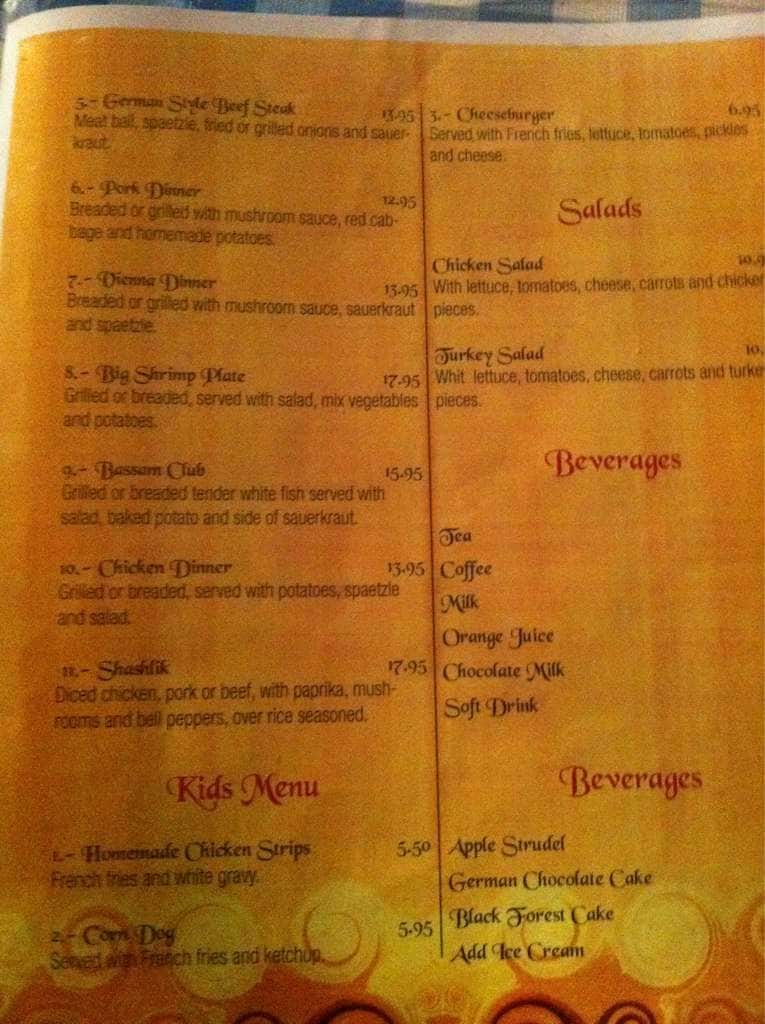 5.- German Style Beef Steak 13.95
Meat ball, spaetzle, fried or grilled onions and sauer-
kraut.
6.- Pork Dinner 12.95
Breaded or grilled with mushroom sauce, red cab-
bage and homemade potatoes.
7.- Vienna Dinner 13.95
Breaded or grilled with mushroom sauce, sauerkraut
and spaetzle.
8.- Big Shrimp Plate 17.95
Grilled or breaded, served with salad, mix vegetables
and potatoes.
9.- Bassam Club 15.95
Grilled or breaded tender white fish served with
salad, baked potato and side of sauerkraut.
10.- Chicken Dinner 13.95
Grilled or breaded, served with potatoes, spaetzle
and salad.
11.- Shashlik 17.95
Diced chicken, pork or beef, with paprika, mush-
rooms and bell peppers, over rice seasoned.
Kids Menu
1.- Homemade Chicken Strips 5.50
French fries and white gravy.
2.- Corn Dog 5.95
Served with French fries and ketchup.
3.- Cheeseburger 6.95
Served with French fries, lettuce, tomatoes, pickles
and cheese.
Salads
Chicken Salad 10.9
With lettuce, tomatoes, cheese, carrots and chicken
pieces.
Turkey Salad 10.
Whit lettuce, tomatoes, cheese, carrots and turke
pieces.
Beverages
Tea
Coffee
Milk
Orange Juice
Chocolate Milk
Soft Drink
Beverages
Apple Strudel
German Chocolate Cake
Black Forest Cake
Add Ice Cream